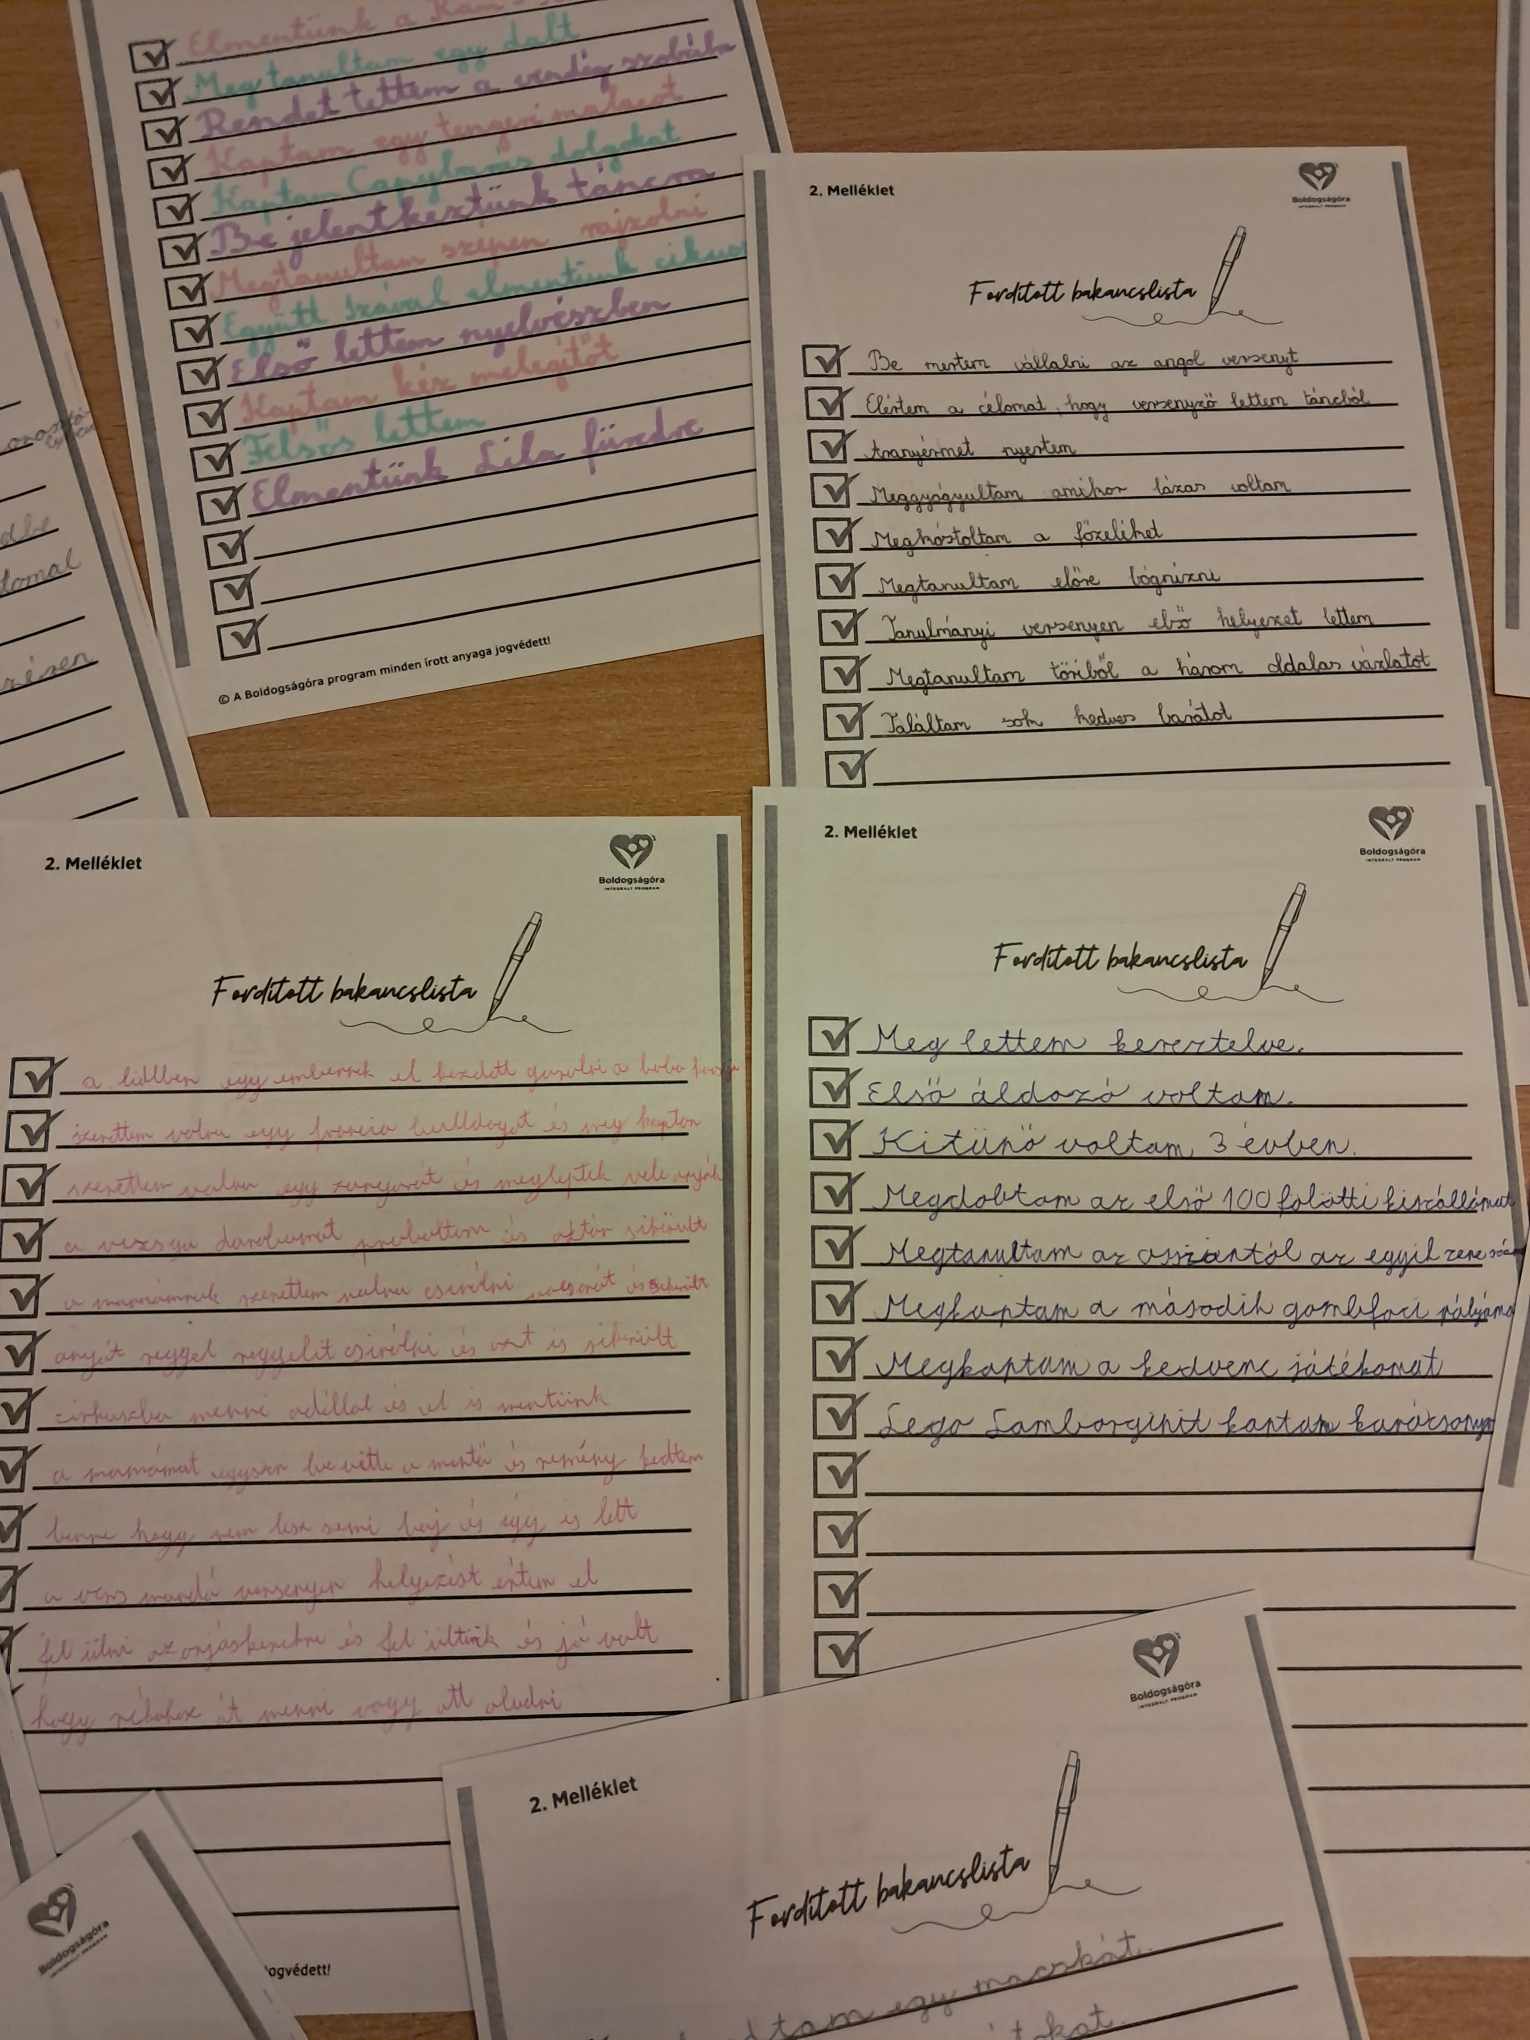 Elmentünk a
Megtanultam egy dalt
Rendet tettem a vendég szobába
Kaptam egy tengeri malacot
Kaptam Capybarás dolgokat
Be jelentkeztünk táncra
Megtanultam szépen rajzolni
Együtt Izával elmentünk
Első lettem nyelvészben
Kaptam kéz melegítőt
Felsős lettem
Elmentünk Lila füredre
© A Boldogságóra program minden írott anyaga jogvédett!
2. Melléklet
Boldogságóra
INTEGRÁLT PROGRAM
Fordított bakancslista
Be mertem vállalni az angol versenyt
Elértem a célomat, hogy versenyző lettem táncból
Aranyérmet nyertem
Meggyógyultam amikor lázas voltam
Megkóstoltam a főzeléket
Megtanultam előre bógnizni
Tanulmányi versenyen első helyezet lettem
Megtanultam töriből a három oldalas vázlatot
Találtam sok kedves barátot
2. Melléklet
Boldogságóra
INTEGRÁLT PROGRAM
Fordított bakancslista
a lidlben egy embernek el kezdott gurulni a baba
szerettem volna egy francia bulldogot és meg kaptam
szerettem volna egy és megleptek vele
a vizsga darabomat probáltam és aktár sikörült
a mamámnak szerettem volna csinálni vacsorát és
anyát reggel reggelit csinálni és ezt is sikerült
cirkuszba menni adéllal és el is mentünk
a mamámat egyszer be vitte a mentő és remény kedtem
benne hogy nem lesz semi baj és így is lett
a vers mondó versenyen helyezést értem el
fel ülni az óriáskerekre és fel ültünk és jó volt
hogy át menni vagy ott aludni
2. Melléklet
Boldogságóra
INTEGRÁLT PROGRAM
Fordított bakancslista
Meg lettem keresztelve.
Első áldozó voltam.
Kitünő voltam 3 évben.
Megdobtam az első 100 fölötti kiszállómat
Megtanultam az ossiantól az egyik zene
Megkaptam a második gombfoci pályáma
Megkaptam a kedvenc játékomat
Lego Lamborginit kaptam karácsonyra
2. Melléklet
Boldogságóra
INTEGRÁLT PROGRAM
Fordított bakancslista
egy macskát.
Boldogságóra
INTEGRÁLT PROGRAM
jogvédett!